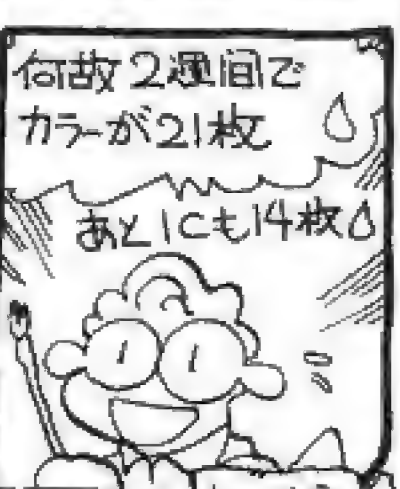 何故2週間で
カラーが21枚
あと1Cも14枚